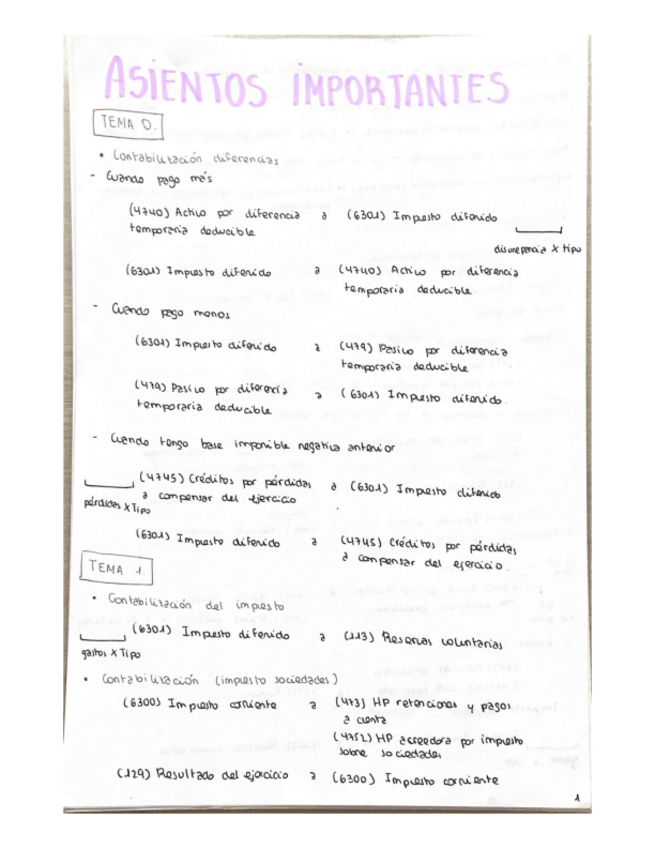 ASIENTOS IMPORTANTES
TEMA 0.
• Contabilización diferencias
- Cuando pago más
(4740) Activo por diferencia a (6301) Impuesto diferido
temporaria deducible
discrepancia x tipo
(6301) Impuesto diferido a (4740) Activo por diferencia
temporaria deducible
- Cuando pago menos
(6301) Impuesto diferido a (479) Pasivo por diferencia
temporaria deducible
(479) Pasivo por diferencia a (6301) Impuesto diferido.
temporaria deducible
- Cuando tengo base imponible negativa anterior
(4745) Créditos por pérdidas a (6301) Impuesto diferido
a compensar del ejercicio
pérdidas x Tipo
(6301) Impuesto diferido a (4745) Créditos por pérdidas
a compensar del ejercicio.
TEMA 1.
• Contabilización del impuesto
(6301) Impuesto diferido a (113) Reservas voluntarias
gastos x Tipo
• Contabilización (impuesto sociedades)
(6300) Impuesto corriente a (473) HP retenciones y pagos
a cuenta
(4752) HP acreedora por impuesto
sobre sociedades
(129) Resultado del ejercicio a (6300) Impuesto corriente
1